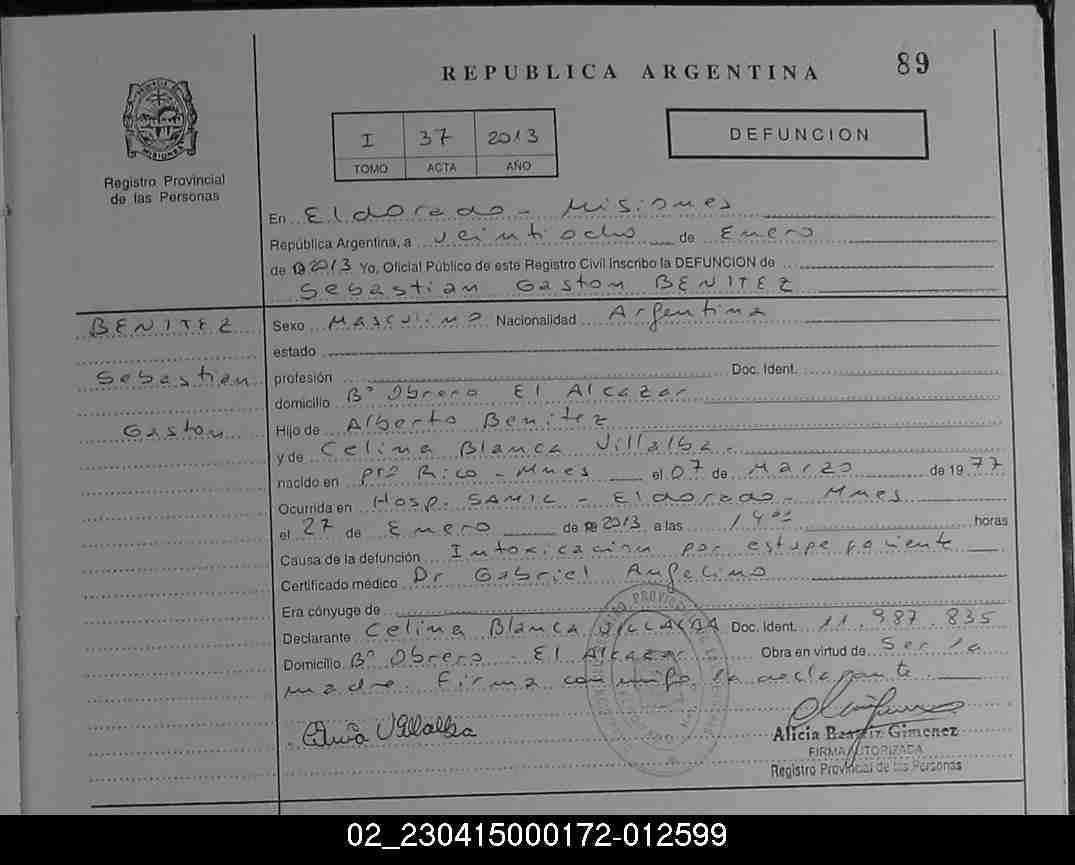 REPUBLICA ARGENTINA
89
PROVINCIA DE
MISIONES
Registro Provincial
de las Personas
I 37 2013
TOMO ACTA AÑO
DEFUNCION
En Eldorado - Misiones
República Argentina, a veintiocho de Enero
de 2013 Yo, Oficial Público de este Registro Civil inscribo la DEFUNCION de
Sebastian Gaston BENITEZ
BENITEZ
Sebastian
Gaston
Sexo Masculino Nacionalidad Argentina
estado
profesión Doc. Ident.
domicilio Bº Obrero El Alcazar
Hijo de Alberto Benitez
y de Celina Blanca Villalba
nacido en Pto Rico - Mnes el 07 de Marzo de 1977
Ocurrida en Hosp. SAMIC - Eldorado - Mnes
el 27 de Enero de 2013 a las 14ºº horas
Causa de la defunción Intoxicacion por estupefaciente
Certificado médico Dr Gabriel Angelino
Era cónyuge de
Declarante Celina Blanca VILLALBA Doc. Ident. 11.987.835
Domicilio Bº Obrero - El Alcazar Obra en virtud de Ser la
madre firma conmigo la declarante
Villalba
Alicia Beatriz Gimenez
FIRMA AUTORIZADA
Registro Provincial de las Personas
02_230415000172-012599